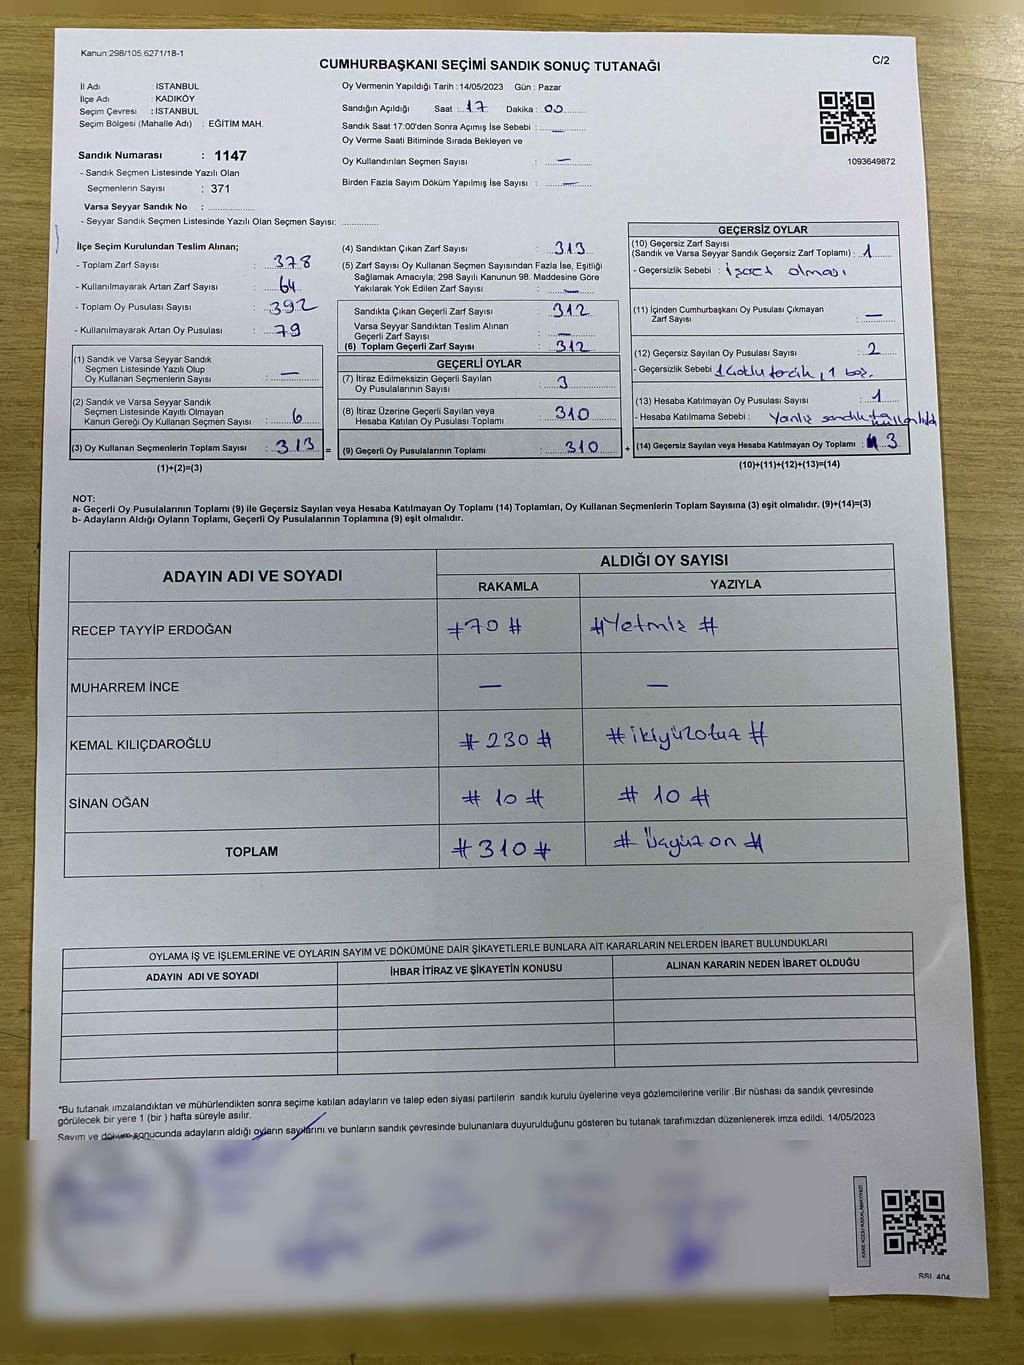 Kanun:298/105.6271/18-1
C/2
CUMHURBAŞKANI SEÇİMİ SANDIK SONUÇ TUTANAĞI
İl Adı : İSTANBUL
İlçe Adı : KADIKÖY
Seçim Çevresi : İSTANBUL
Seçim Bölgesi (Mahalle Adı) : EĞİTİM MAH.
Sandık Numarası : 1147
- Sandık Seçmen Listesinde Yazılı Olan
Seçmenlerin Sayısı : 371
Varsa Seyyar Sandık No :
- Seyyar Sandık Seçmen Listesinde Yazılı Olan Seçmen Sayısı:
Oy Vermenin Yapıldığı Tarih :14/05/2023 Gün : Pazar
Sandığın Açıldığı Saat : 17 Dakika : 00
Sandık Saat 17:00'den Sonra Açımış İse Sebebi : —
Oy Verme Saati Bitiminde Sırada Bekleyen ve
Oy Kullandırılan Seçmen Sayısı : —
Birden Fazla Sayım Döküm Yapılmış İse Sayısı : —
1093649872
İlçe Seçim Kurulundan Teslim Alınan;
- Toplam Zarf Sayısı : 378
- Kullanılmayarak Artan Zarf Sayısı : 64
- Toplam Oy Pusulası Sayısı : 392
- Kullanılmayarak Artan Oy Pusulası : 79
(1) Sandık ve Varsa Seyyar Sandık
Seçmen Listesinde Yazılı Olup
Oy Kullanan Seçmenlerin Sayısı : —
(2) Sandık ve Varsa Seyyar Sandık
Seçmen Listesinde Kayıtlı Olmayan
Kanun Gereği Oy Kullanan Seçmen Sayısı : 6
(3) Oy Kullanan Seçmenlerin Toplam Sayısı : 313 =
(1)+(2)=(3)
(4) Sandıktan Çıkan Zarf Sayısı : 313
(5) Zarf Sayısı Oy Kullanan Seçmen Sayısından Fazla İse, Eşitliği
Sağlamak Amacıyla; 298 Sayılı Kanunun 98. Maddesine Göre
Yakılarak Yok Edilen Zarf Sayısı : —
Sandıkta Çıkan Geçerli Zarf Sayısı : 312
Varsa Seyyar Sandıktan Teslim Alınan
Geçerli Zarf Sayısı : —
(6) Toplam Geçerli Zarf Sayısı : 312
GEÇERLİ OYLAR
(7) İtiraz Edilmeksizin Geçerli Sayılan
Oy Pusulalarının Sayısı : 3
(8) İtiraz Üzerine Geçerli Sayılan veya
Hesaba Katılan Oy Pusulaları Toplamı : 310
(9) Geçerli Oy Pusulalarının Toplamı : 310 +
GEÇERSİZ OYLAR
(10) Geçersiz Zarf Sayısı
(Sandık ve Varsa Seyyar Sandık Geçersiz Zarf Toplamı) : 1
- Geçersizlik Sebebi : işaret olması
(11) İçinden Cumhurbaşkanı Oy Pusulası Çıkmayan
Zarf Sayısı : —
(12) Geçersiz Sayılan Oy Pusulası Sayısı : 2
- Geçersizlik Sebebi : 1 çoklu tercih, 1 boş.
(13) Hesaba Katılmayan Oy Pusulası Sayısı : 1
- Hesaba Katılmama Sebebi : Yanlış sandıkta kullanıldı
(14) Geçersiz Sayılan veya Hesaba Katılmayan Oy Toplamı : 3
(10)+(11)+(12)+(13)=(14)
NOT:
a- Geçerli Oy Pusulalarının Toplamı (9) ile Geçersiz Sayılan veya Hesaba Katılmayan Oy Toplamı (14) Toplamları, Oy Kullanan Seçmenlerin Toplam Sayısına (3) eşit olmalıdır. (9)+(14)=(3)
b- Adayların Aldığı Oyların Toplamı, Geçerli Oy Pusulalarının Toplamına (9) eşit olmalıdır.
ADAYIN ADI VE SOYADI ALDIĞI OY SAYISI
RAKAMLA YAZIYLA
RECEP TAYYİP ERDOĞAN #70# #Yetmiş#
MUHARREM İNCE — —
KEMAL KILIÇDAROĞLU #230# #ikiyüzotuz#
SİNAN OĞAN #10# #10#
TOPLAM #310# #Üçyüzon#
OYLAMA İŞ VE İŞLEMLERİNE VE OYLARIN SAYIM VE DÖKÜMÜNE DAİR ŞİKAYETLERLE BUNLARA AİT KARARLARIN NELERDEN İBARET BULUNDUKLARI
ADAYIN ADI VE SOYADI İHBAR İTİRAZ VE ŞİKAYETİN KONUSU ALINAN KARARIN NEDEN İBARET OLDUĞU
*Bu tutanak imzalandıktan ve mühürlendikten sonra seçime katılan adayların ve talep eden siyasi partilerin sandık kurulu üyelerine veya gözlemcilerine verilir .Bir nüshası da sandık çevresinde
görülecek bir yere 1 (bir ) hafta süreyle asılır.
Sayım ve döküm sonucunda adayların aldığı oyların sayılarını ve bunların sandık çevresinde bulunanlara duyurulduğunu gösteren bu tutanak tarafımızdan düzenlenerek imza edildi. 14/05/2023
KARE KODU KARALAMAYINIZ!